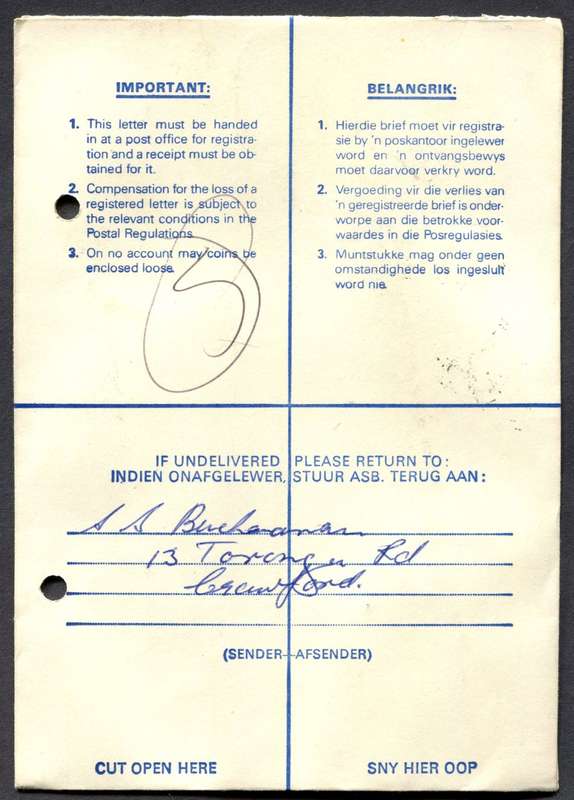 IMPORTANT:
1. This letter must be handed
in at a post office for registra-
tion and a receipt must be ob-
tained for it.
2. Compensation for the loss of a
registered letter is subject to
the relevant conditions in the
Postal Regulations.
3. On no account may coins be
enclosed loose.
BELANGRIK:
1. Hierdie brief moet vir registra-
sie by 'n poskantoor ingelewer
word en 'n ontvangsbewys
moet daarvoor verkry word.
2. Vergoeding vir die verlies van
'n geregistreerde brief is onder-
worpe aan die betrokke voor-
waardes in die Posregulasies.
3. Muntstukke mag onder geen
omstandighede los ingesluit
word nie.
IF UNDELIVERED PLEASE RETURN TO:
INDIEN ONAFGELEWER, STUUR ASB. TERUG AAN:
S S Buchanan
13 Rd
Crawford.
(SENDER–AFSENDER)
CUT OPEN HERE
SNY HIER OOP